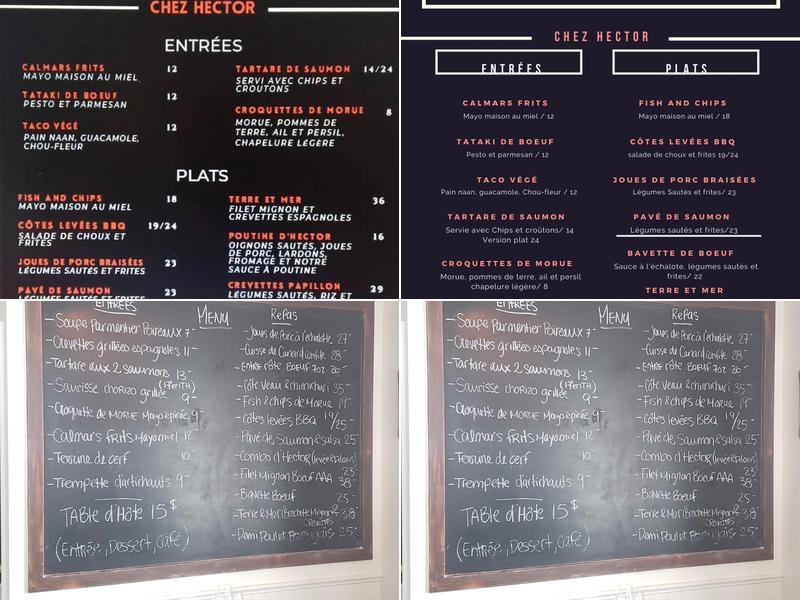 CHEZ HECTOR
ENTRÉES
CALMARS FRITS 12
MAYO MAISON AU MIEL
TATAKI DE BOEUF 12
PESTO ET PARMESAN
TACO VÉGÉ 12
PAIN NAAN, GUACAMOLE,
CHOU-FLEUR
TARTARE DE SAUMON 14/24
SERVI AVEC CHIPS ET
CROUTONS
CROQUETTES DE MORUE 8
MORUE, POMMES DE
TERRE, AIL ET PERSIL,
CHAPELURE LÉGÈRE
PLATS
FISH AND CHIPS 18
MAYO MAISON AU MIEL
CÔTES LEVÉES BBQ 19/24
SALADE DE CHOUX ET
FRITES
JOUES DE PORC BRAISÉES 23
LÉGUMES SAUTÉS ET FRITES
PAVÉ DE SAUMON 23
LÉGUMES SAUTÉS ET FRITES
TERRE ET MER 36
FILET MIGNON ET
CREVETTES ESPAGNOLES
POUTINE D'HECTOR 16
OIGNONS SAUTÉS, JOUES
DE PORC, LARDONS,
FROMAGE ET NOTRE
SAUCE À POUTINE
CREVETTES PAPILLON 29
LÉGUMES SAUTÉS, RIZ ET
CHEZ HECTOR
ENTRÉES
CALMARS FRITS
Mayo maison au miel / 12
TATAKI DE BOEUF
Pesto et parmesan / 12
TACO VÉGÉ
Pain naan, guacamole, Chou-fleur / 12
TARTARE DE SAUMON
Servie avec Chips et croûtons/ 14
Version plat 24
CROQUETTES DE MORUE
Morue, pommes de terre, ail et persil
chapelure légère/ 8
PLATS
FISH AND CHIPS
Mayo maison au miel / 18
CÔTES LEVÉES BBQ
salade de choux et frites 19/24
JOUES DE PORC BRAISÉES
Légumes Sautés et frites/ 23
PAVÉ DE SAUMON
Légumes Sautés et frites/23
BAVETTE DE BOEUF
Sauce à l'échalote, légumes sautés et
frites/ 22
TERRE ET MER
ENTRÉES
-Soupe Parmentier Poireaux 7-
-Crevettes grillées espagnoles 11-
-Tartare aux 2 saumons 13-
-Saucisse chorizo grillée 9-
-Croquette de MORUE Mayo épicée 9-
-Calmars frits Mayo miel 12
-Terrine de cerf 10
-Trempette d'artichauts 9-
TABLE d'Hôte 15$
(Entrée, Dessert, café)
MENU
Repas
-Joues de Porc à l'échalote 27-
-Cuisse de Canard confite 28-
-Entre côte BOEUF 7oz 26-
-Côte Veau &chimichuri 35-
-Fish &chips de Morue 19-
-Côtes levées BBQ 19/25-
-Pavé de Saumon & salsa 25-
-Combo d'Hector 23-
-Filet Mignon Boeuf AAA 38-
-Bavette Boeuf 25-
-Terre & Mer (Brochette Mignon 38-
-Demi Poulet Portugais 25-
ENTRÉES
-Soupe Parmentier Poireaux 7-
-Crevettes grillées espagnoles 11-
-Tartare aux 2 saumons 13-
-Saucisse chorizo grillée 9-
-Croquette de MORUE Mayo épicée 9-
-Calmars frits Mayo miel 12
-Terrine de cerf 10
-Trempette d'artichauts 9-
TABLE d'Hôte 15$
(Entrée, Dessert, café)
MENU
Repas
-Joues de Porc à l'échalote 27-
-Cuisse de Canard confite 28-
-Entre côte BOEUF 7oz 26-
-Côte Veau &chimichuri 35-
-Fish &chips de Morue 19-
-Côtes levées BBQ 19/25-
-Pavé de Saumon & salsa 25-
-Combo d'Hector 23-
-Filet Mignon Boeuf AAA 38-
-Bavette Boeuf 25-
-Terre & Mer (Brochette Mignon 38-
-Demi Poulet Portugais 25-